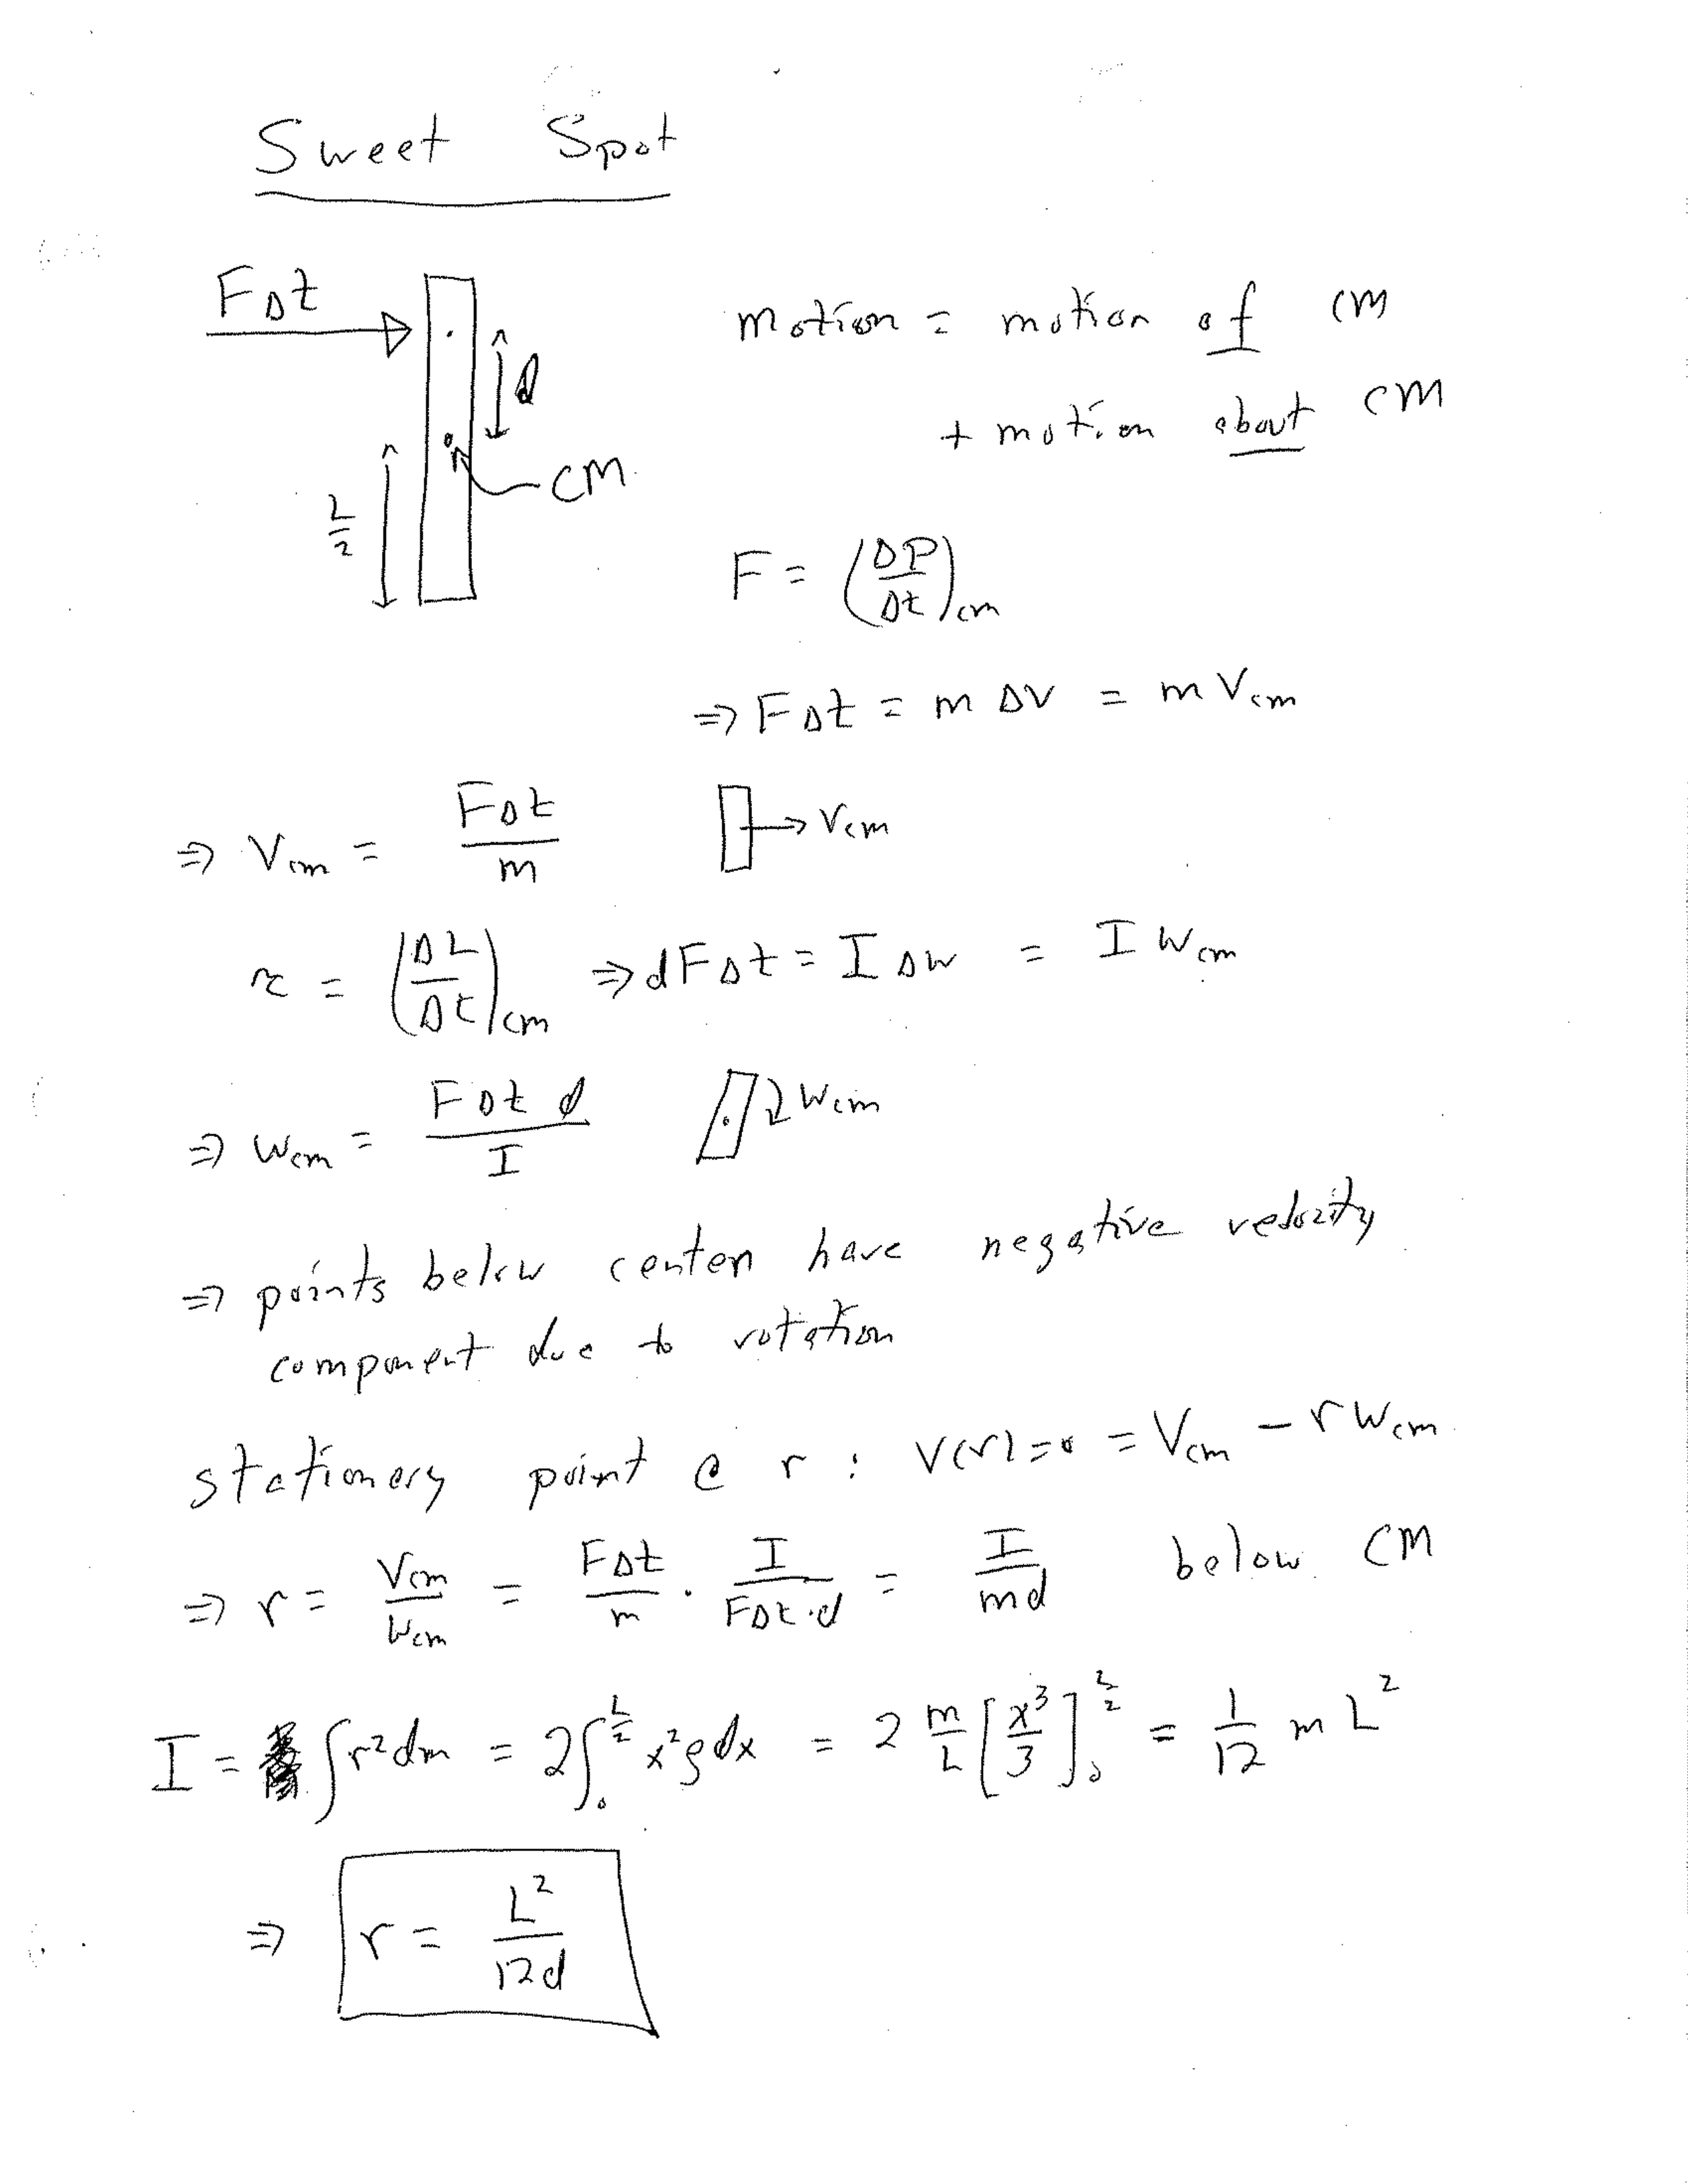 Sweet Spot
FΔt
d
L/2
CM
motion = motion of CM
+ motion about CM
F = (ΔP/Δt)cm
⇒ FΔt = m ΔV = m Vcm
⇒ Vcm = FΔt/m
Vcm
τ = (ΔL/Δt)cm ⇒ dFΔt = I Δω = I ωcm
⇒ ωcm = FΔt d/I
ωcm
⇒ points below center have negative velocity
component due to rotation
stationary point @ r : V(r)=0 = Vcm − r ωcm
⇒ r = Vcm/ωcm = FΔt/m · I/FΔt·d = I/md below CM
I = ∫r²dm = 2∫₀^(L/2) x²ρdx = 2 m/L [x³/3]₀^(L/2) = 1/12 m L²
⇒ r = L²/12d